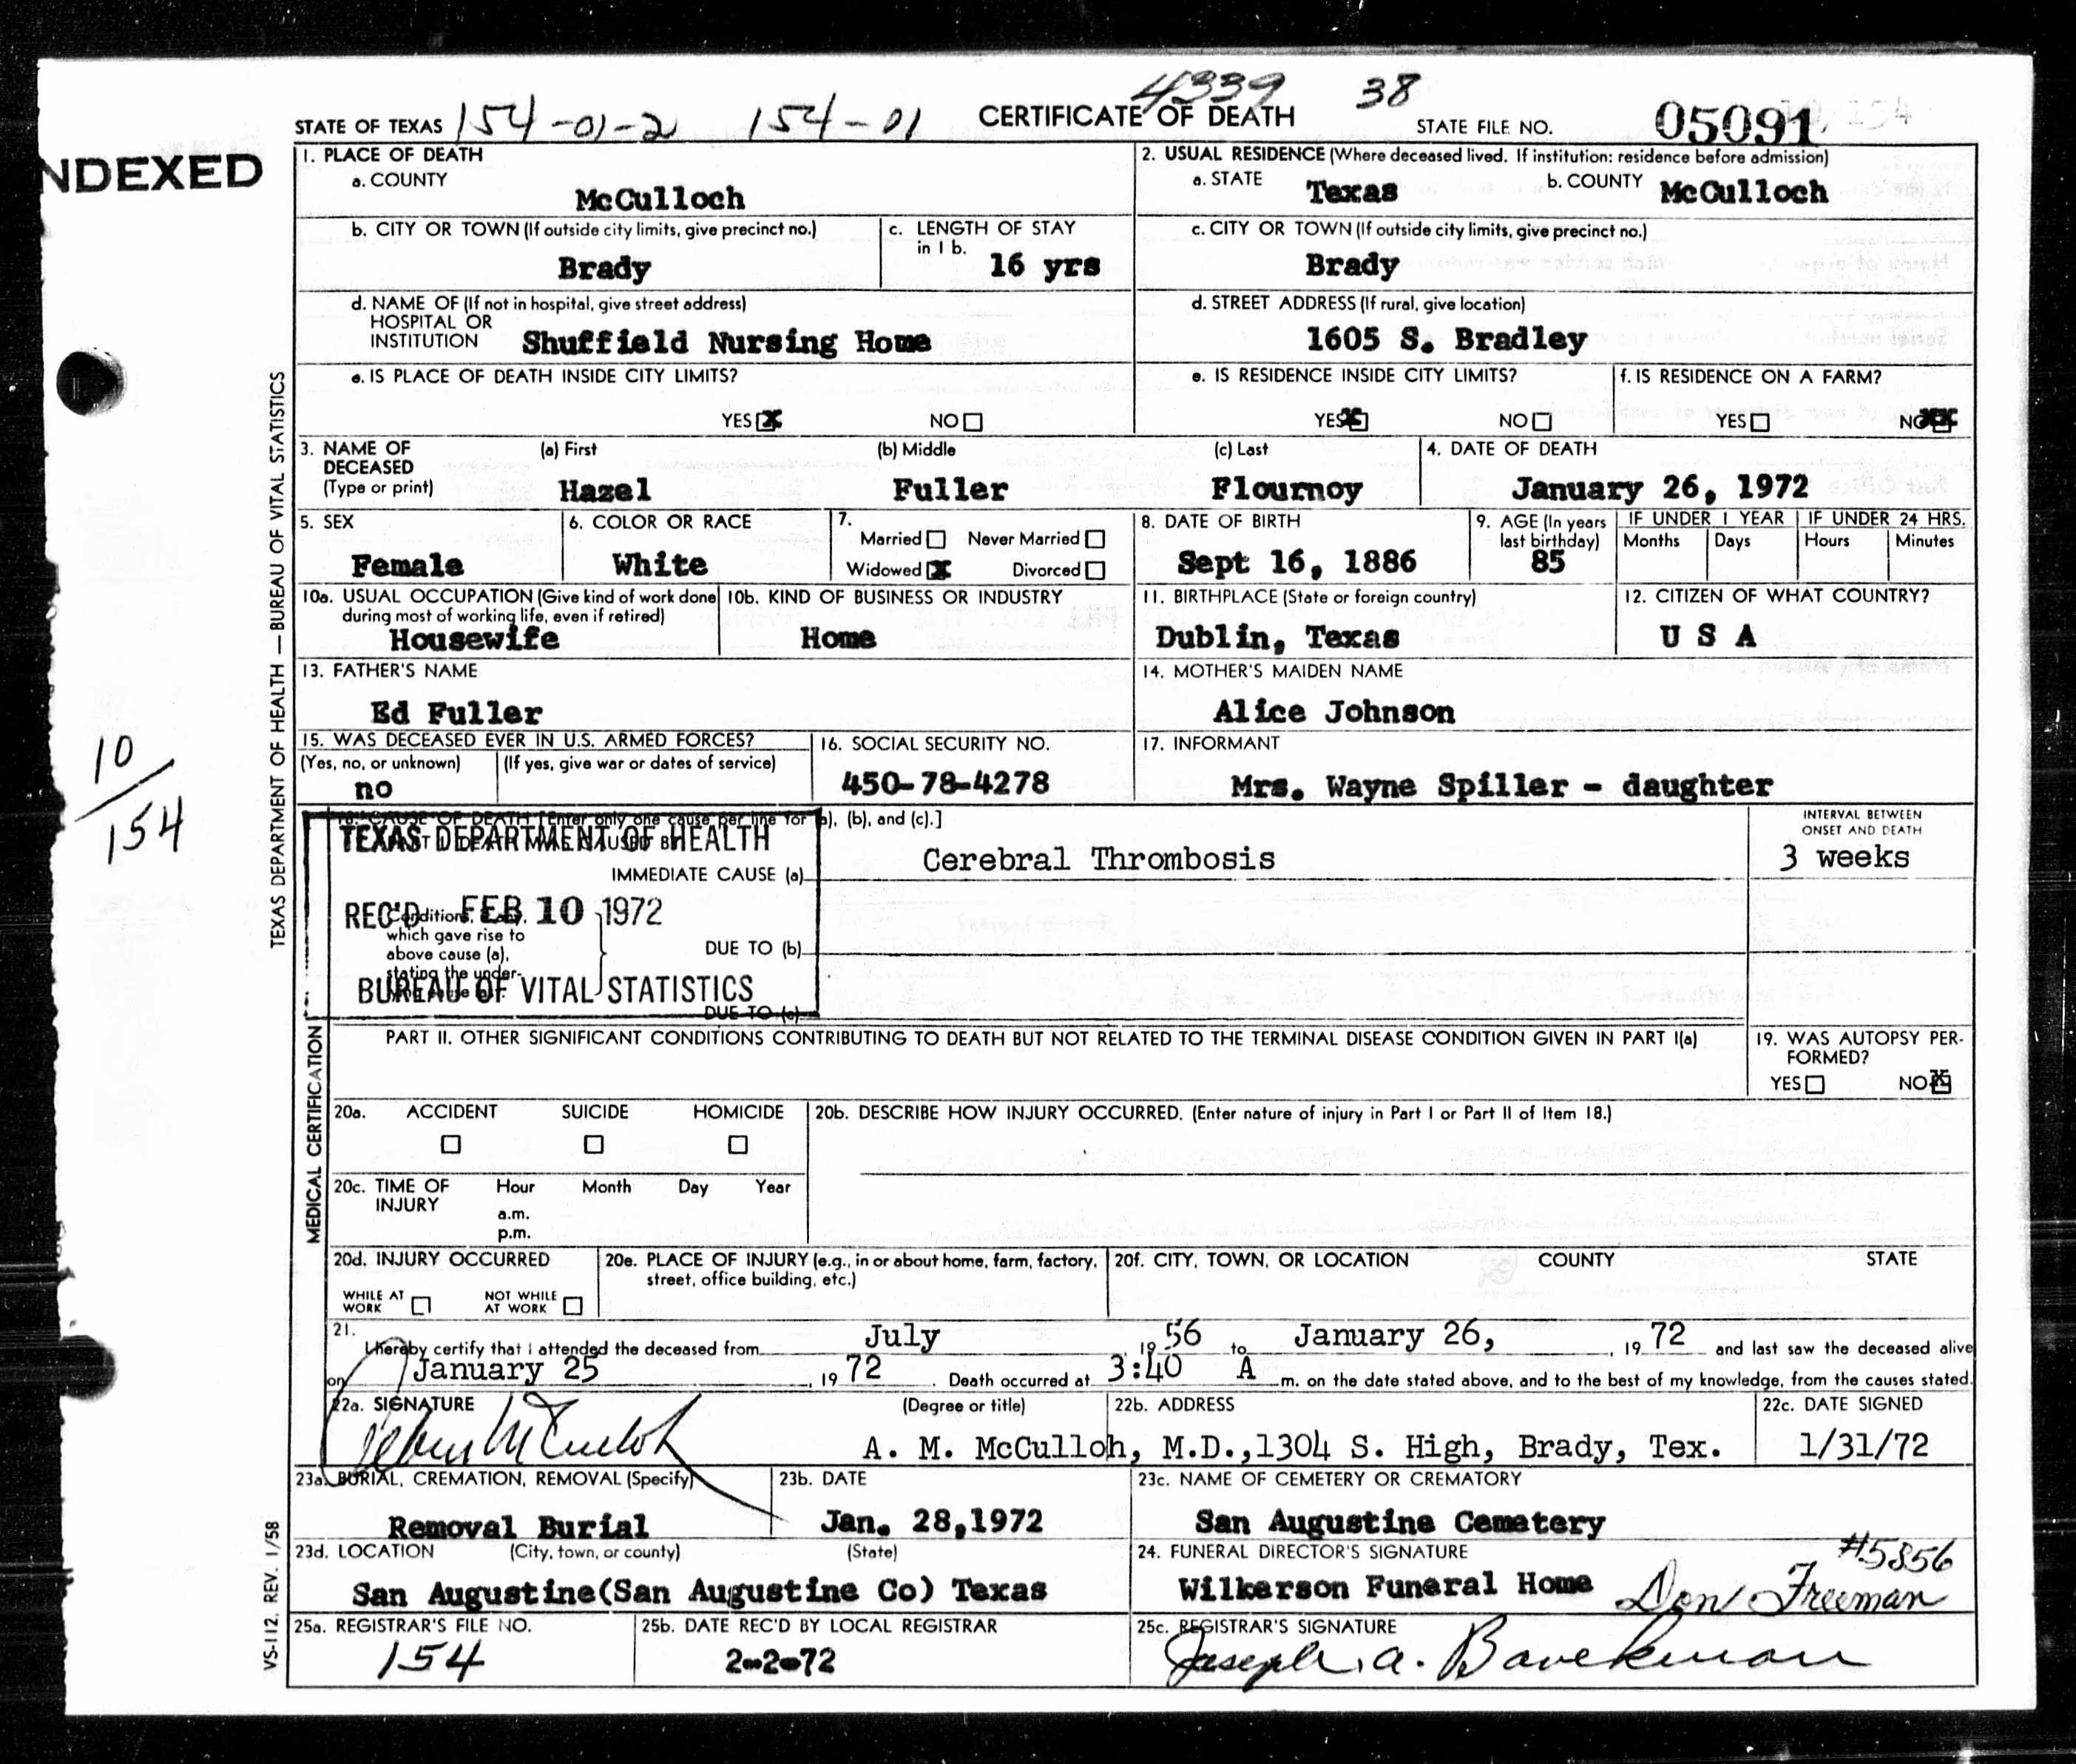 4339 38
STATE OF TEXAS 154-01-2 154-01 CERTIFICATE OF DEATH STATE FILE NO. 05091
NDEXED
1. PLACE OF DEATH
a. COUNTY
McCulloch
2. USUAL RESIDENCE (Where deceased lived. If institution: residence before admission)
a. STATE Texas b. COUNTY McCulloch
b. CITY OR TOWN (If outside city limits, give precinct no.)
Brady
c. LENGTH OF STAY
in 1 b.
16 yrs
c. CITY OR TOWN (If outside city limits, give precinct no.)
Brady
d. NAME OF (If not in hospital, give street address)
HOSPITAL OR
INSTITUTION Shuffield Nursing Home
d. STREET ADDRESS (If rural, give location)
1605 S. Bradley
e. IS PLACE OF DEATH INSIDE CITY LIMITS?
YES X NO
e. IS RESIDENCE INSIDE CITY LIMITS?
YES X NO
f. IS RESIDENCE ON A FARM?
YES NO X
3. NAME OF
DECEASED
(Type or print)
(a) First (b) Middle (c) Last
Hazel Fuller Flournoy
4. DATE OF DEATH
January 26, 1972
5. SEX
Female
6. COLOR OR RACE
White
7.
Married Never Married
Widowed X Divorced
8. DATE OF BIRTH
Sept 16, 1886
9. AGE (In years
last birthday)
85
IF UNDER 1 YEAR IF UNDER 24 HRS.
Months Days Hours Minutes
10a. USUAL OCCUPATION (Give kind of work done
during most of working life, even if retired)
Housewife
10b. KIND OF BUSINESS OR INDUSTRY
Home
11. BIRTHPLACE (State or foreign country)
Dublin, Texas
12. CITIZEN OF WHAT COUNTRY?
U S A
13. FATHER'S NAME
Ed Fuller
14. MOTHER'S MAIDEN NAME
Alice Johnson
15. WAS DECEASED EVER IN U.S. ARMED FORCES?
(Yes, no, or unknown) (If yes, give war or dates of service)
no
16. SOCIAL SECURITY NO.
450-78-4278
17. INFORMANT
Mrs. Wayne Spiller - daughter
10/154
TEXAS DEPARTMENT OF HEALTH — BUREAU OF VITAL STATISTICS
18. CAUSE OF DEATH [Enter only one cause per line for (a), (b), and (c).]
TEXAS DEPARTMENT OF HEALTH
IMMEDIATE CAUSE (a) Cerebral Thrombosis
INTERVAL BETWEEN
ONSET AND DEATH
3 weeks
REC'D FEB 10 1972
which gave rise to
above cause (a),
stating the under-
DUE TO (b)
BUREAU OF VITAL STATISTICS
DUE TO (c)
MEDICAL CERTIFICATION
PART II. OTHER SIGNIFICANT CONDITIONS CONTRIBUTING TO DEATH BUT NOT RELATED TO THE TERMINAL DISEASE CONDITION GIVEN IN PART I(a)
19. WAS AUTOPSY PER-
FORMED?
YES NO X
20a. ACCIDENT SUICIDE HOMICIDE
20b. DESCRIBE HOW INJURY OCCURRED. (Enter nature of injury in Part I or Part II of Item 18.)
20c. TIME OF
INJURY
Hour Month Day Year
a.m.
p.m.
20d. INJURY OCCURRED
WHILE AT
WORK
NOT WHILE
AT WORK
20e. PLACE OF INJURY (e.g., in or about home, farm, factory,
street, office building, etc.)
20f. CITY, TOWN, OR LOCATION COUNTY STATE
21.
I hereby certify that I attended the deceased from July, 1956 to January 26, , 1972 and last saw the deceased alive
on January 25, 1972. Death occurred at 3:40 A m. on the date stated above, and to the best of my knowledge, from the causes stated.
22a. SIGNATURE (Degree or title)
A. M. McCulloh, M.D.,
22b. ADDRESS
1304 S. High, Brady, Tex.
22c. DATE SIGNED
1/31/72
23a. BURIAL, CREMATION, REMOVAL (Specify)
Removal Burial
23b. DATE
Jan. 28,1972
23c. NAME OF CEMETERY OR CREMATORY
San Augustine Cemetery
23d. LOCATION (City, town, or county) (State)
San Augustine(San Augustine Co) Texas
24. FUNERAL DIRECTOR'S SIGNATURE
#5856
Wilkerson Funeral Home Don Freeman
25a. REGISTRAR'S FILE NO.
154
25b. DATE REC'D BY LOCAL REGISTRAR
2-2-72
25c. REGISTRAR'S SIGNATURE
Joseph A.
VS-112. REV. 1/58